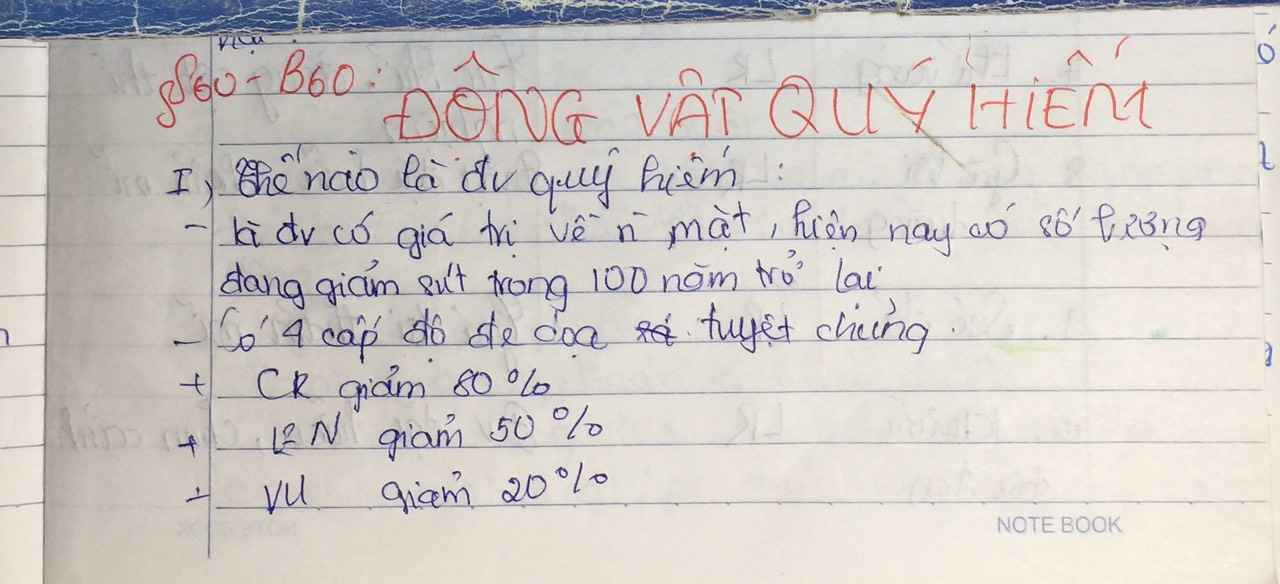 §60 - B60:
ĐỘNG VẬT QUÝ HIẾM
I, Thế nào là đv quý hiếm:
- là đv có giá trị về n mặt, hiện nay có số lượng
đang giảm sút trong 100 năm trở lại
- Có 4 cấp độ đe dọa tuyệt chủng.
+ CR giảm 80%
+ EN giảm 50%
+ VU giảm 20%
NOTE BOOK